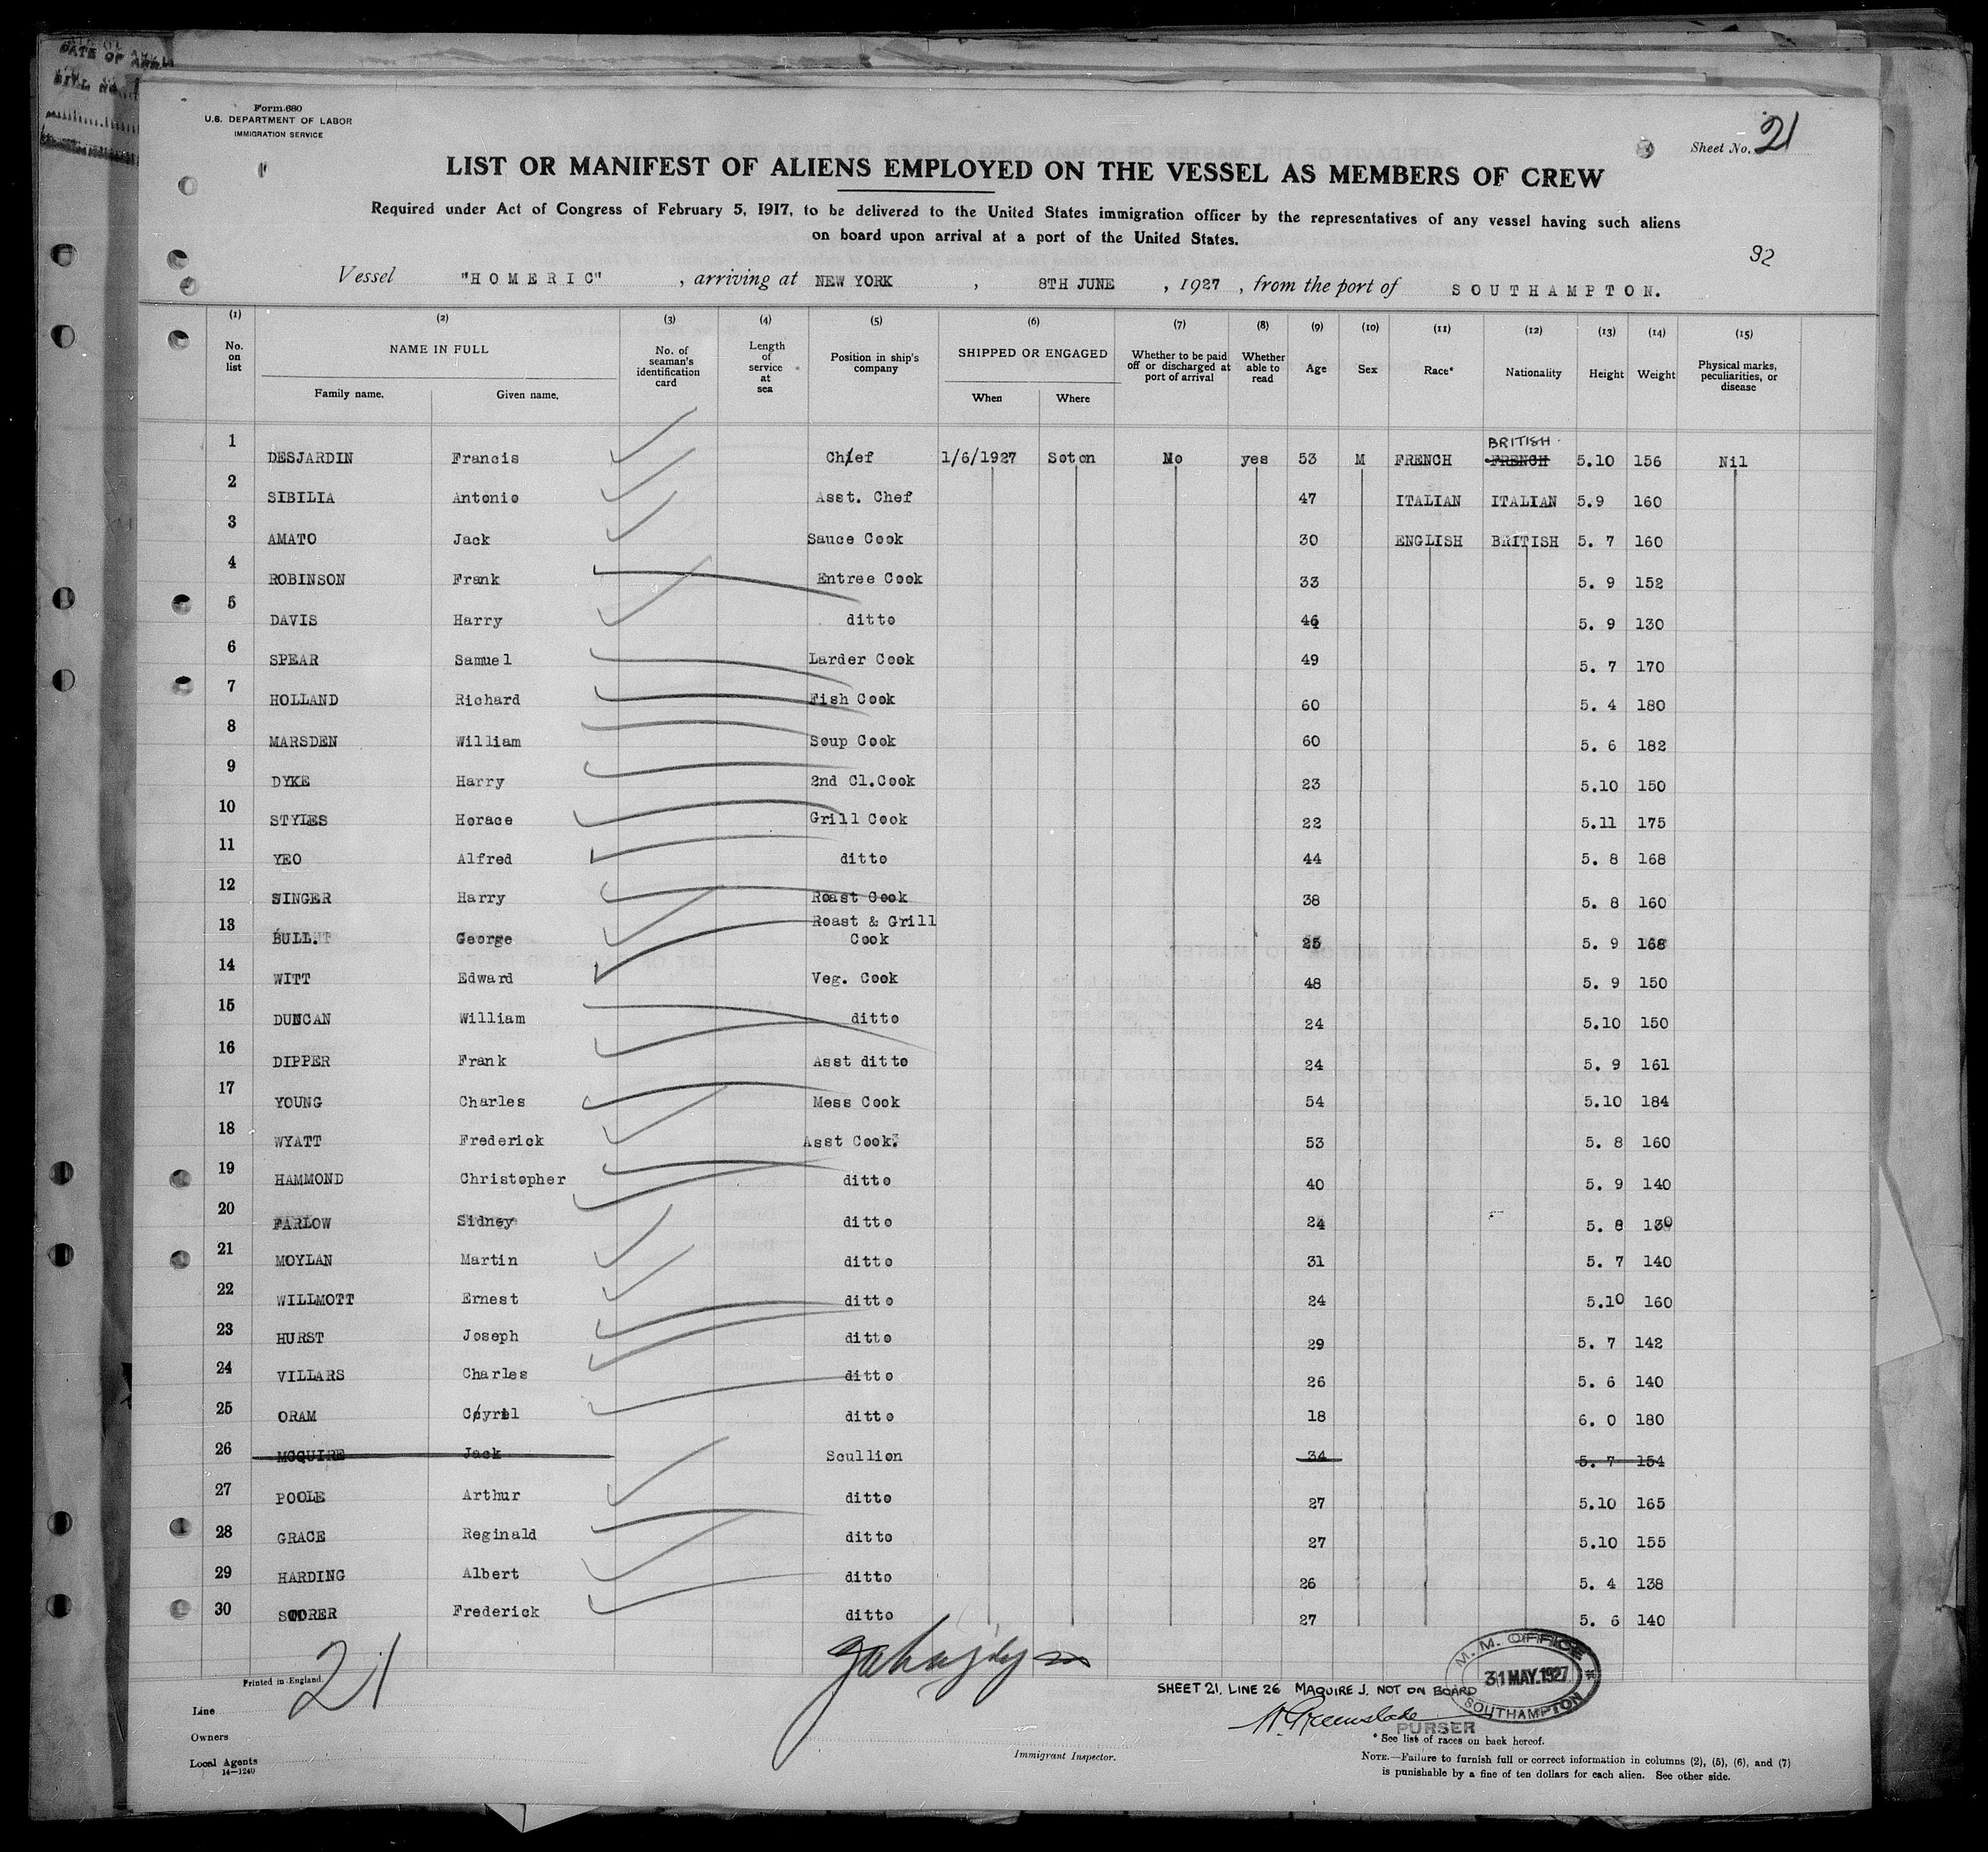 DATE OF ARR
BILL NO
Form 680
U.S. DEPARTMENT OF LABOR
IMMIGRATION SERVICE
Sheet No. 21
LIST OR MANIFEST OF ALIENS EMPLOYED ON THE VESSEL AS MEMBERS OF CREW
Required under Act of Congress of February 5, 1917, to be delivered to the United States immigration officer by the representatives of any vessel having such aliens
on board upon arrival at a port of the United States.
92
Vessel "HOMERIC" , arriving at NEW YORK , 8TH JUNE , 1927 , from the port of SOUTHAMPTON.
(1) (2) (3) (4) (5) (6) (7) (8) (9) (10) (11) (12) (13) (14) (15)
No. on list NAME IN FULL Family name. Given name. No. of seaman's identification card Length of service at sea Position in ship's company SHIPPED OR ENGAGED When Where Whether to be paid off or discharged at port of arrival Whether able to read Age Sex Race* Nationality Height Weight Physical marks, peculiarities, or disease
BRITISH
1 DESJARDIN Francis Chief 1/6/1927 Soton No yes 53 M FRENCH FRENCH 5.10 156 Nil
2 SIBILIA Antonio Asst. Chef 47 ITALIAN ITALIAN 5.9 160
3 AMATO Jack Sauce Cook 30 ENGLISH BRITISH 5. 7 160
4 ROBINSON Frank Entree Cook 33 5. 9 152
5 DAVIS Harry ditto 46 5. 9 130
6 SPEAR Samuel Larder Cook 49 5. 7 170
7 HOLLAND Richard Fish Cook 60 5. 4 180
8 MARSDEN William Soup Cook 60 5. 6 182
9 DYKE Harry 2nd Cl.Cook 23 5.10 150
10 STYLES Horace Grill Cook 22 5.11 175
11 YEO Alfred ditto 44 5. 8 168
12 SINGER Harry Roast Cook 38 5. 8 160
13 BULL. George Roast & Grill Cook 25 5. 9 168
14 WITT Edward Veg. Cook 48 5. 9 150
15 DUNCAN William ditto 24 5.10 150
16 DIPPER Frank Asst ditto 24 5. 9 161
17 YOUNG Charles Mess Cook 54 5.10 184
18 WYATT Frederick Asst Cook. 53 5. 8 160
19 HAMMOND Christopher ditto 40 5. 9 140
20 FARLOW Sidney ditto 24 5. 8 130
21 MOYLAN Martin ditto 31 5. 7 140
22 WILLMOTT Ernest ditto 24 5.10 160
23 HURST Joseph ditto 29 5. 7 142
24 VILLARS Charles ditto 26 5. 6 140
25 ORAM Cyril ditto 18 6. 0 180
26 MCQUIRE Jack Scullion 34 5. 7 154
27 POOLE Arthur ditto 27 5.10 165
28 GRACE Reginald ditto 27 5.10 155
29 HARDING Albert ditto 26 5. 4 138
30 Frederick ditto 27 5. 6 140
Printed in England.
21
M.M. OFFICE
31 MAY.1927
SOUTHAMPTON
SHEET 21, LINE 26 MAQUIRE J. NOT ON BOARD
PURSER
Line
Owners
Local Agents
14—1240
Immigrant Inspector.
* See list of races on back hereof.
NOTE.—Failure to furnish full or correct information in columns (2), (5), (6), and (7)
is punishable by a fine of ten dollars for each alien. See other side.